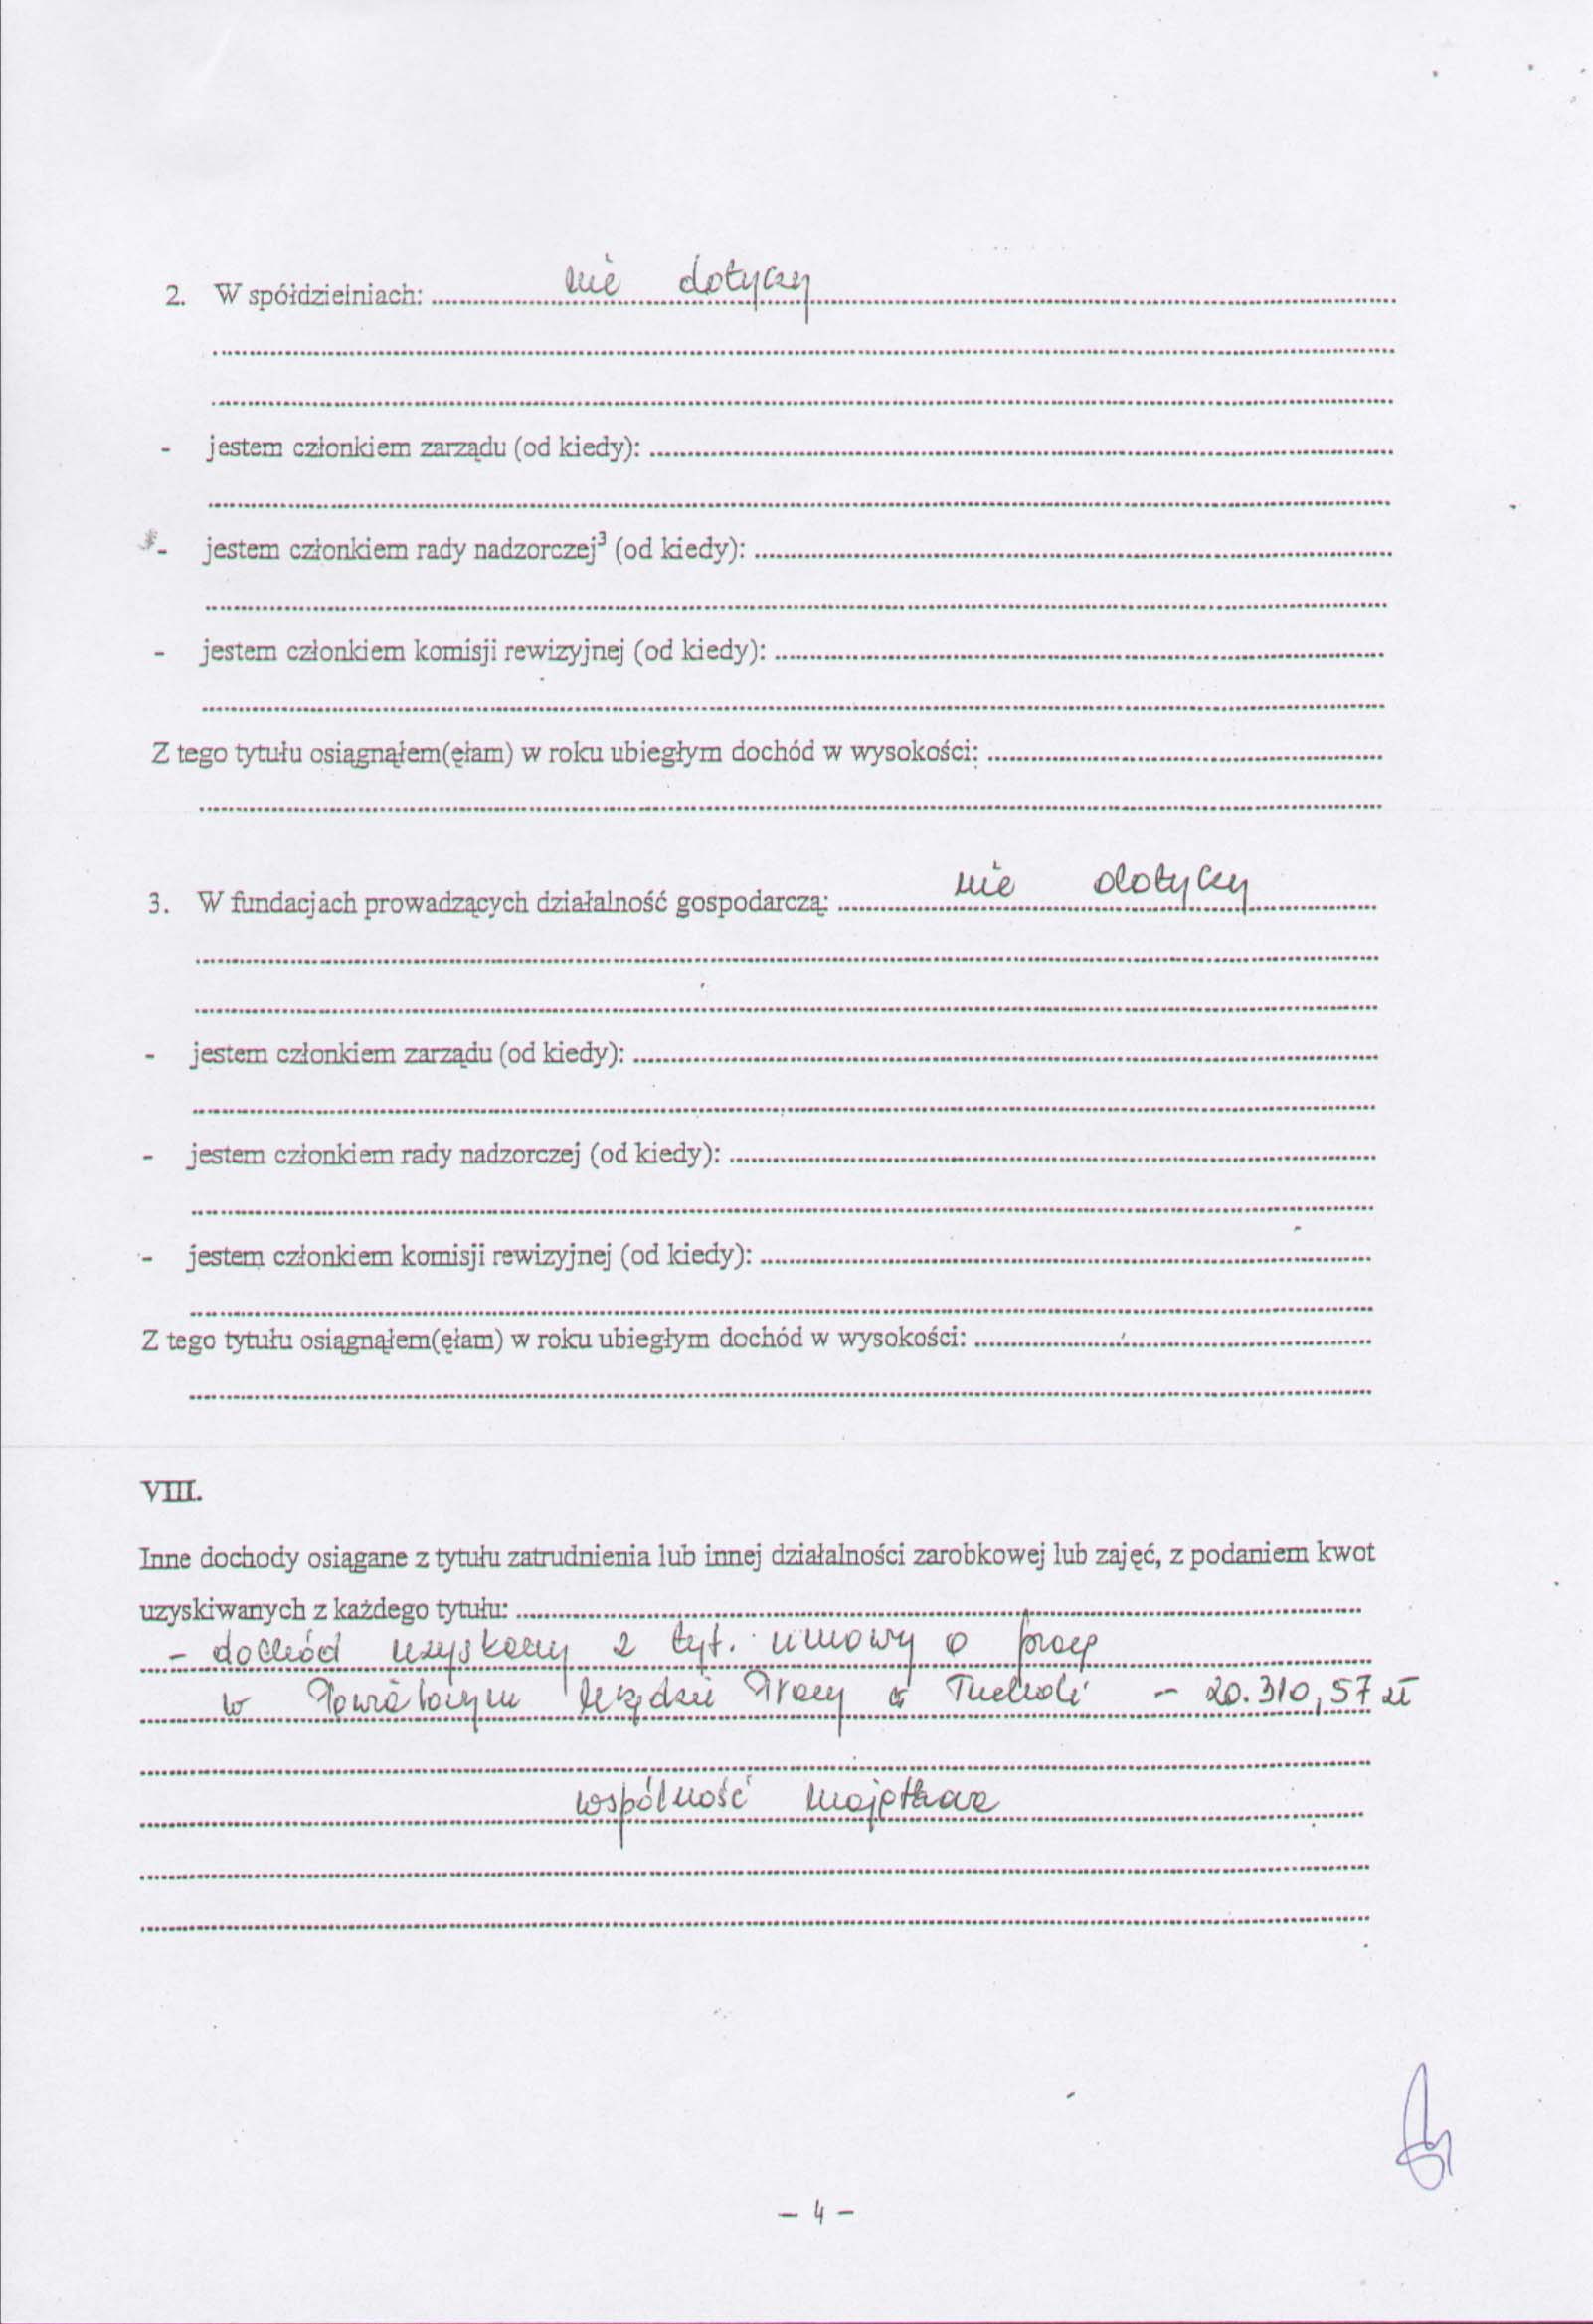 2. W spółdzielniach: nie dotyczy
- jestem członkiem zarządu (od kiedy):
- jestem członkiem rady nadzorczej³ (od kiedy):
- jestem członkiem komisji rewizyjnej (od kiedy):
Z tego tytułu osiągnąłem(ęłam) w roku ubiegłym dochód w wysokości:
3. W fundacjach prowadzących działalność gospodarczą: nie dotyczy
- jestem członkiem zarządu (od kiedy):
- jestem członkiem rady nadzorczej (od kiedy):
- jestem członkiem komisji rewizyjnej (od kiedy):
Z tego tytułu osiągnąłem(ęłam) w roku ubiegłym dochód w wysokości:
VIII.
Inne dochody osiągane z tytułu zatrudnienia lub innej działalności zarobkowej lub zajęć, z podaniem kwot
uzyskiwanych z każdego tytułu:
- dochód uzyskany z tyt. umowy o pracę
w Powiatowym Urzędzie Pracy w Tucholi - 20.310,57 zł
wspólność majątkowa
- 4 -